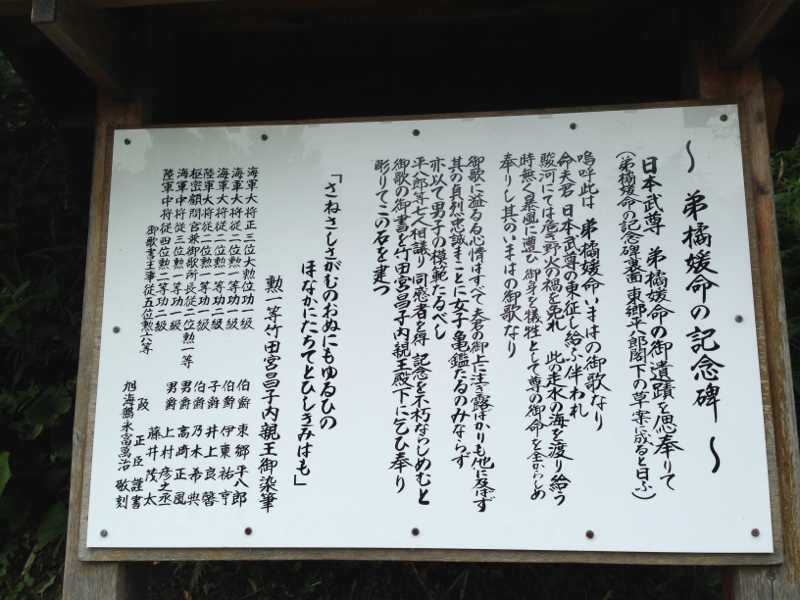 ～弟橘媛命の記念碑～
日本武尊 弟橘媛命の御遺蹟を偲奉りて
(弟橘媛命の記念碑裏面 東郷平八郎閣下の草案に成ると曰ふ)
嗚呼此は 弟橘媛命いまはの御歌なり
命夫君 日本武尊の東征し給ふ伴われ
駿河にては危き野火の禍を免れ 此の走水の海を渡り給う
時無く暴風に遭ひ 御身を犠牲として尊の御命を全からしめ
奉りし其のいまはの御歌なり
御歌に溢るる心情はすべて夫君の御上に注ぎ露ばかりも他に及ばず
其の貞烈忠誠まことに女子亀鑑たるのみならず
亦以て男子の模範たるべし
平八郎等七人相議り同感者を得 記念を不朽ならしめむと
御歌の御書を竹田宮昌子内親王殿下に乞ひ奉り
彫りてこの石を建つ
「さねさしさがむのおぬにもゆるひの
ほなかにたちてとひしきみはも」
勲一等竹田宮昌子内親王御染筆
海軍大将正三位大勲位功一級 伯爵 東郷平八郎
海軍大将従二位勲一等功一級 伯爵 伊東祐亨
海軍大将正二位勲一等功二級 子爵 井上良馨
陸軍大将従二位勲一等功一級 伯爵 乃木希典
枢密顧問官兼御歌所長従二位勲一等 男爵 高崎正風
海軍中将従三位勲一等功一級 男爵 上村彦之丞
陸軍中将従四位勲二等功二級 藤井茂太
御歌書主事従五位勲六等 阪正臣 謹書
旭海鶴永富萬治 敬刻